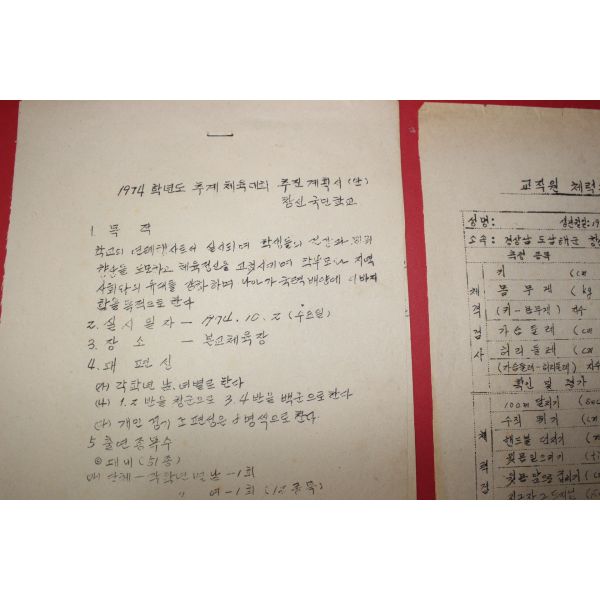 1974 학년도 추계 체육대회 추진계획서 (안)
국민학교
1. 목 적
학교의 연례행사로서 실시되며 학생들의 건강과 체력
향상을 도모하고 체육정신을 고취시키며 학부모와 지역
사회와의 유대를 강화하며 나아가 국력배양에 이바지
함을 목적으로 한다
2. 실시일자 - 1974. 10. 2 (수요일)
3. 장 소 - 본교체육장
4. 대 편성
(ㄱ) 각학년 남.녀별로 한다
(ㄴ) 1.2반을 청군으로 3.4반을 백군으로 한다
(ㄷ) 개인 경기 조편성은 8명씩으로 한다.
5. 출연종목수
(51종)
단체 - 각학년별 남 - 1회
" 여 - 1회 (12종목)
교직원 체력
성명:
소속: 경상남도 남해군
측정 종목
체격검사
키 (cm
몸무게 (kg
(키-몸무게) 지수
가슴둘레 (cm
허리둘레 (cm
(가슴둘레-허리둘레) 지수
확인 및 평가
체력검
100m 달리기 (sec
수직 뛰기 (cm
핸드볼 던지기
윗몸일으키기
윗몸앞으로굽히기 (cm